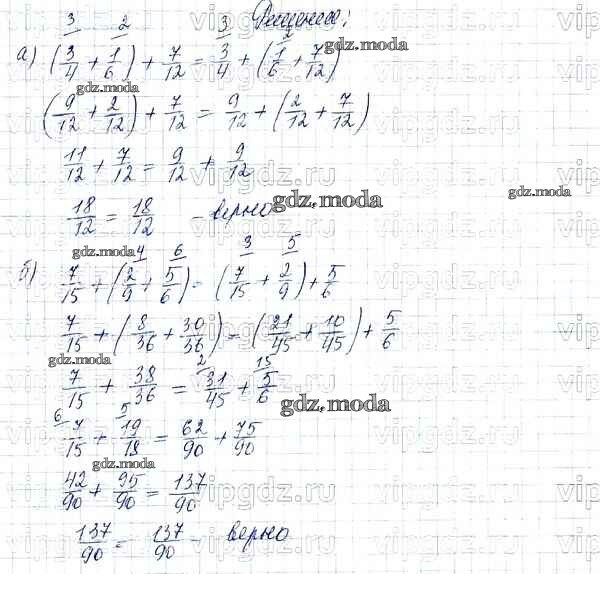 Решение:
3 2 3 2
а) (3/4 + 1/6) + 7/12 = 3/4 + (1/6 + 7/12)
(9/12 + 2/12) + 7/12 = 9/12 + (2/12 + 7/12)
11/12 + 7/12 = 9/12 + 9/12
18/12 = 18/12 - верно
4 6 3 5
б) 7/15 + (2/9 + 5/6) = (7/15 + 2/9) + 5/6
7/15 + (8/36 + 30/36) = (21/45 + 10/45) + 5/6
2 15
7/15 + 38/36 = 31/45 + 5/6
6 5
7/15 + 19/18 = 62/90 + 75/90
42/90 + 95/90 = 137/90
137/90 = 137/90 - верно
gdz.moda
vipgdz.ru